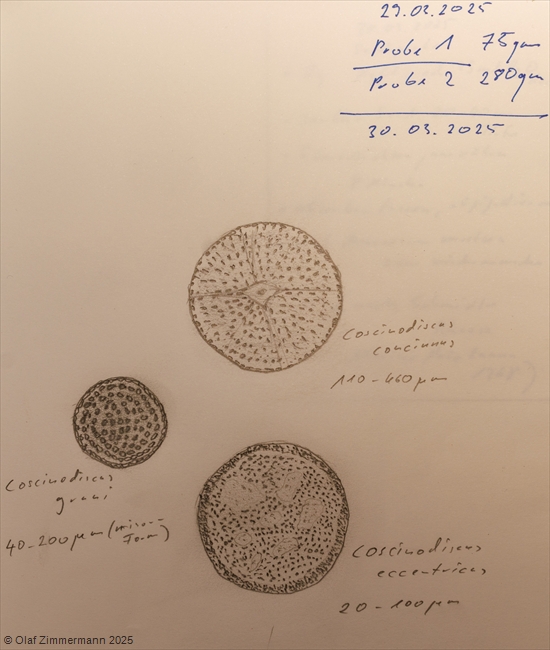 29.03.2025
Probe 1 75gm
Probe 2 280gm
30.03.2025
Coscinodiscus
concinnus
110-460 µm
Coscinodiscus
grani
40-200 µm (
Form)
Coscinodiscus
eccentricus
20-100 µm
© Olaf Zimmermann 2025